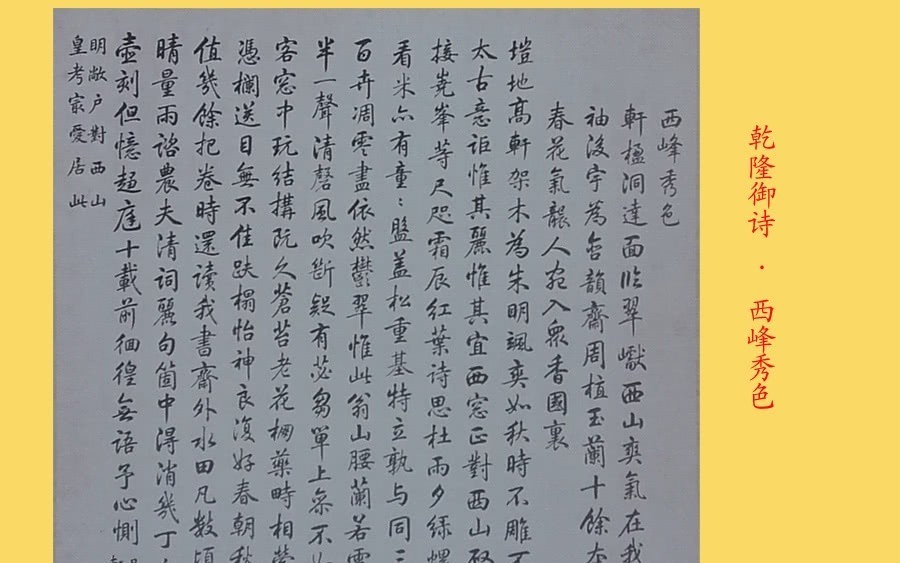 乾隆御诗 · 西峰秀色
西峰秀色
軒楹洞達面臨翠巘西山爽氣在我
袖後宇為含韻齋周植玉蘭十餘本
春花氣襲人宛入衆香國裏
塏地高軒架木為朱明颯爽如秋時不雕不
太古意詎惟其麗惟其宜西窓正對西山啟
接嶤峯等尺咫霜辰紅葉詩思杜雨夕綠螺
看米亦有童〻盤蓋松重基特立孰与同三
百卉凋零盡依然鬱翠惟此翁山腰蘭若雲
半一聲清磬風吹斷疑有苾芻單上參不如
客窓中玩結搆既久蒼苔老花欄藥畤相縈
憑欄送目無不佳趺榻怡神良復好春朝秋
值幾餘把卷時還讀我書齋外水田凡數頃
晴量雨諮農夫清詞麗句箇中得消幾丁
壺刻但憶趨庭十載前徊徨無語予心惻
明敞戶對西山
皇考冣愛居此